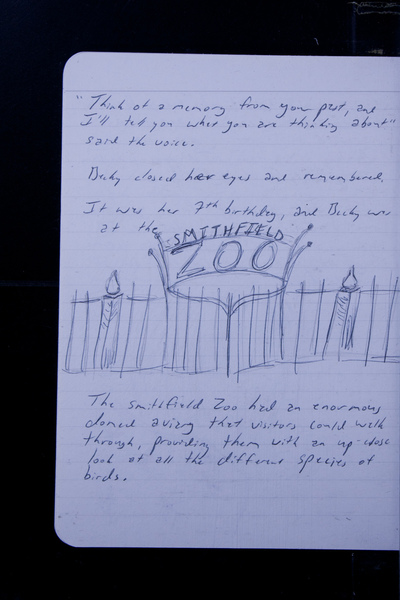 "Think of a memory from your past, and
I'll tell you what you are thinking about"
said the voice.
Becky closed her eyes and remembered.
It was her 7th birthday, and Becky was
at the
SMITHFIELD
ZOO
The Smithfield Zoo had an enormous
domed aviary that visitors could walk
through, providing them with an up-close
look at all the different species of
birds.